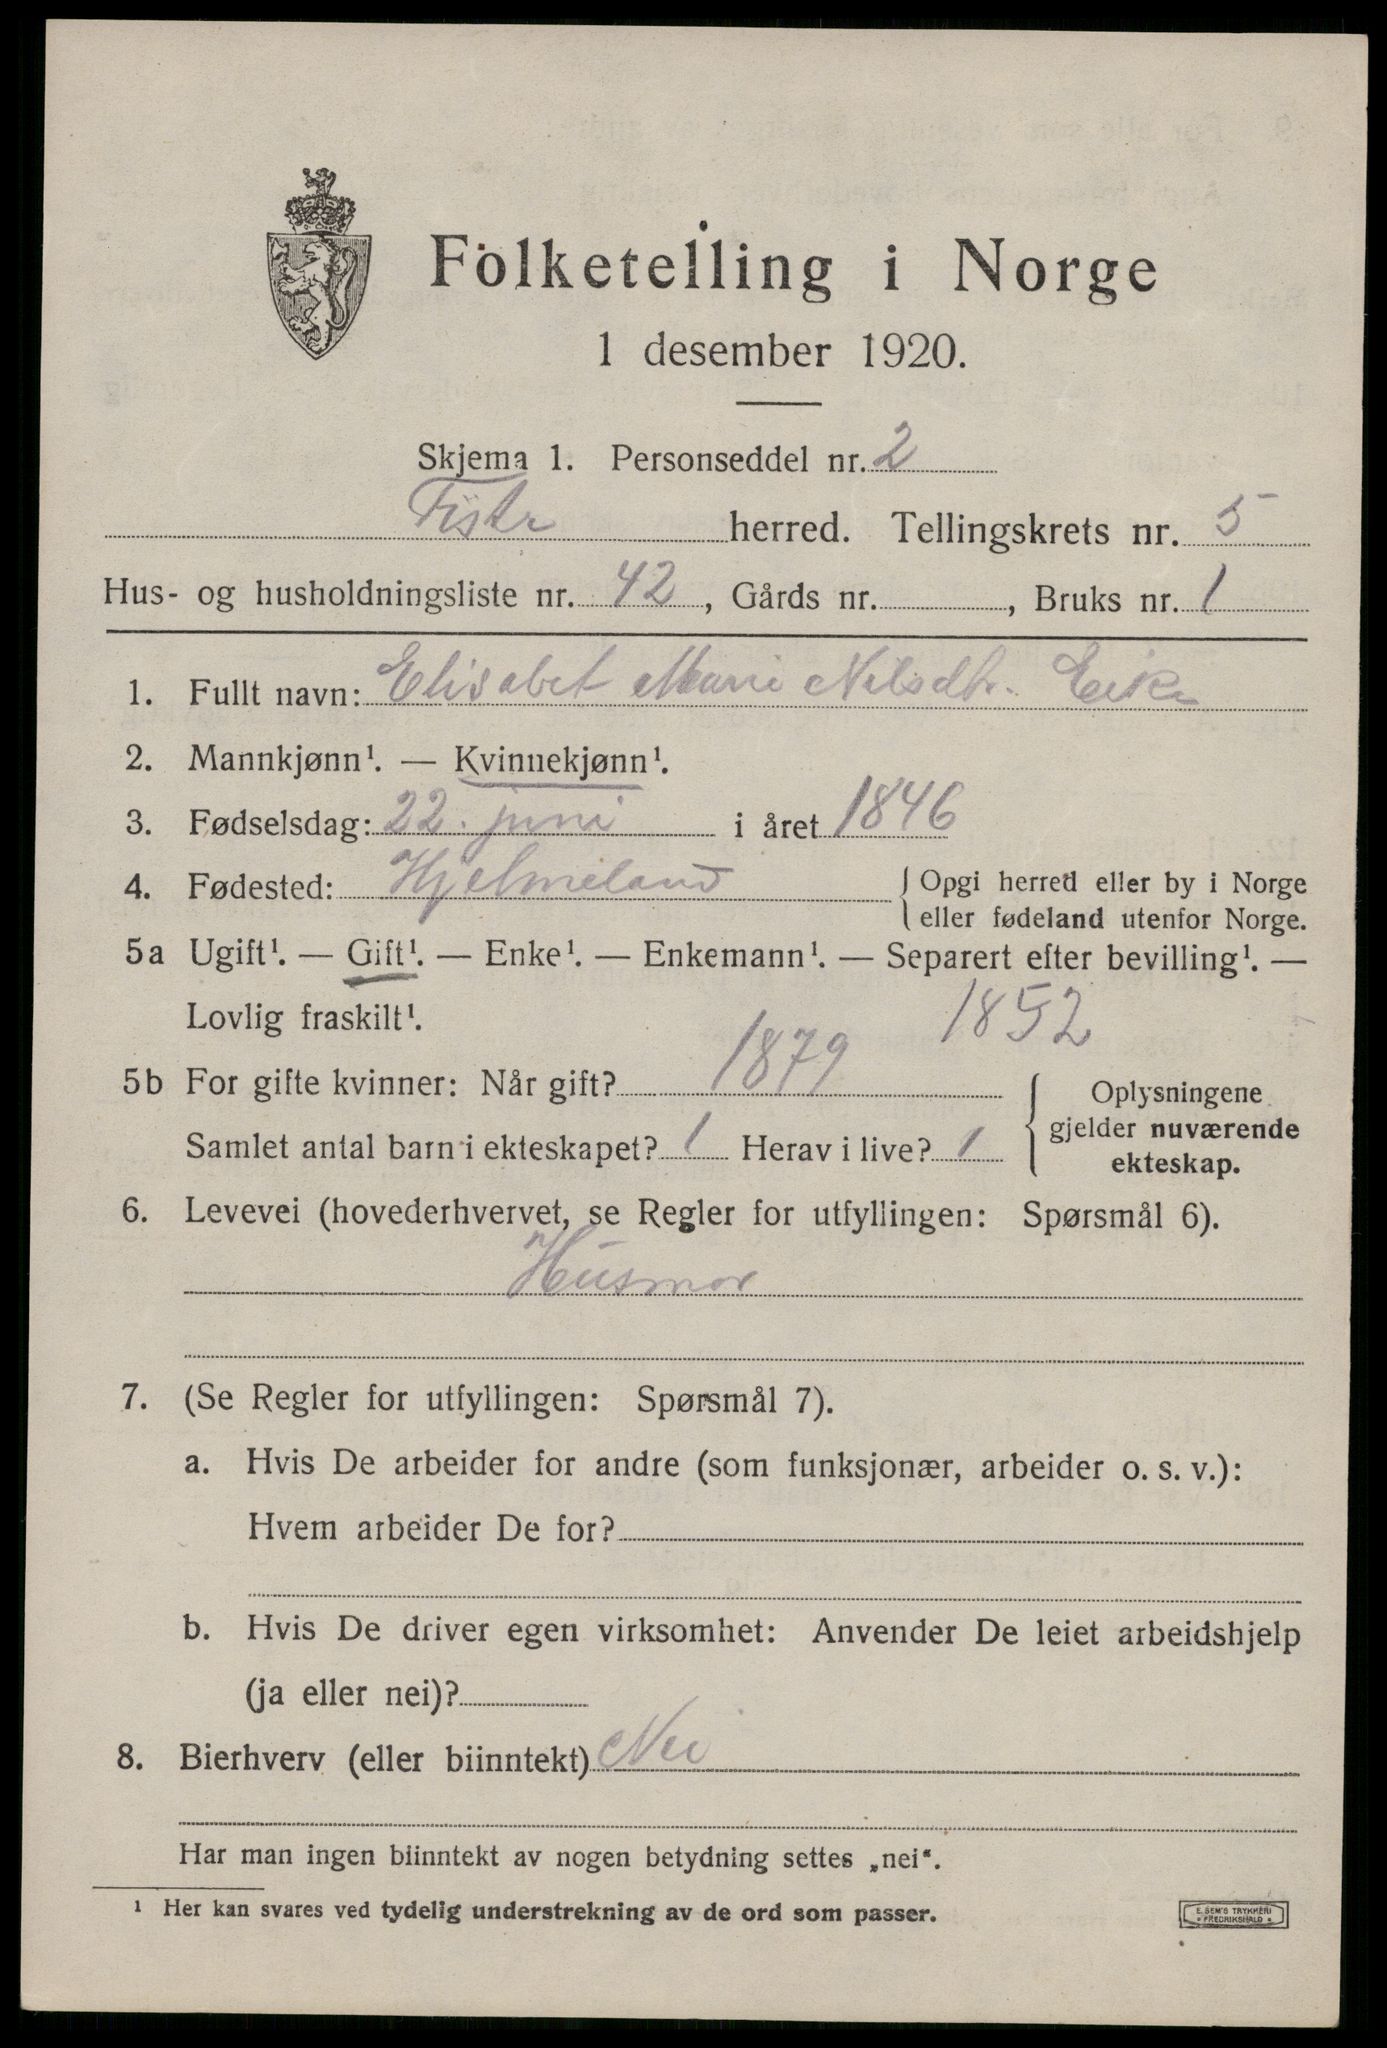 Folketelling i Norge
1 desember 1920.
Skjema 1. Personseddel nr. 2
Fister herred. Tellingskrets nr. 5
Hus- og husholdningsliste nr. 42, Gårds nr. , Bruks nr. 1
1. Fullt navn: Elisabet Marie Nilsdtr. Eike
2. Mannkjønn¹. — Kvinnekjønn¹.
3. Fødselsdag: 22. juni i året 1846
4. Fødested: Hjelmeland { Opgi herred eller by i Norge
eller fødeland utenfor Norge.
5a Ugift¹. — Gift¹. — Enke¹. — Enkemann¹. — Separert efter bevilling¹. —
Lovlig fraskilt¹. 1852
5b For gifte kvinner: Når gift? 1879 { Oplysningene
gjelder nuværende
ekteskap.
Samlet antal barn i ekteskapet? 1 Herav i live? 1
6. Levevei (hovederhvervet, se Regler for utfyllingen: Spørsmål 6).
Husmor
7. (Se Regler for utfyllingen: Spørsmål 7).
a. Hvis De arbeider for andre (som funksjonær, arbeider o. s. v.):
Hvem arbeider De for?
b. Hvis De driver egen virksomhet: Anvender De leiet arbeidshjelp
(ja eller nei)?
8. Bierhverv (eller biinntekt) Nei
Har man ingen biinntekt av nogen betydning settes „nei“.
¹ Her kan svares ved tydelig understrekning av de ord som passer.
E. SEM'S TRYKKERI
FREDRIKSHALD